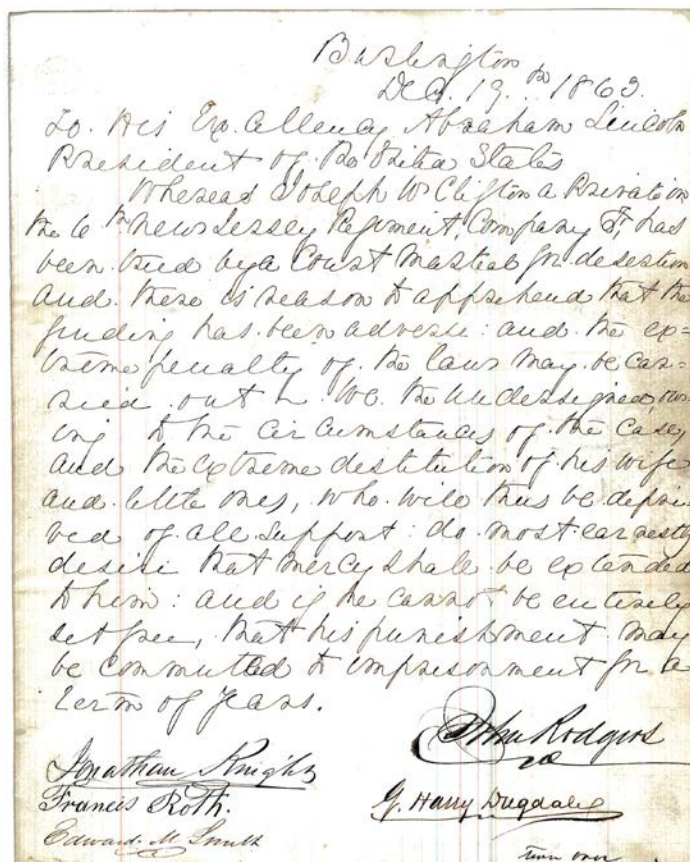 Burlington
Dec. 19.th 1863.
To. His Excellency Abraham Lincoln
President of the United States
Whereas Joseph W Clifton a Private in
the 6th New Jersey Regiment, Company F, has
been tried by a Court Martial for desertion
and there is reason to apprehend that the
finding has been adverse: and the ex=
treme penalty of the law may be car=
ried out We the Undersigned, ow
ing to the circumstances of the case,
and the extreme destitution of his wife
and little ones, who will thus be depri
ved of all support: do most earnestly
desire that mercy shall be extended
to him: and if he cannot be entirely
set free, that his punishment may
be commuted to imprisonment for a
term of years.
John Rodgers
Jonathan Knight
Francis Roth.
G. Harry Dugdale
Edward. M Smith
turn over